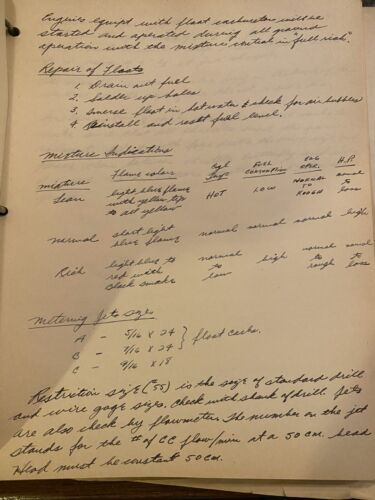 Engines equipt with float carburetors will be
started and operated during all ground
operation with the mixture control in "full rich".
Repair of Floats
1. Drain out fuel
2. Solder up holes
3. Immerse float in hot water & check for air bubbles
4. Reinstall and reset fuel level.
Mixture Indications
mixture Flame colors cyl Temp FUEL CONSUMPTION ENG OPER. H.P.
Lean light blue flame with yellow tip to all yellow HOT LOW NORMAL TO ROUGH normal to loss
normal short light blue flame normal normal normal high
Rich light blue to red with black smoke normal to low high normal to rough normal to loss
Metering Jets Sizes
A - 5/16 x 24
B - 7/16 x 24 } float carbs.
C - 9/16 x 18
Restriction size (#55) is the size of standard drill
and wire gage sizes. Check with shank of drill. Jets
are also check by flowmeter. The number on the jet
stands for the # of CC flow/min at a 50 cm. head
Head must be constant 50 cm.